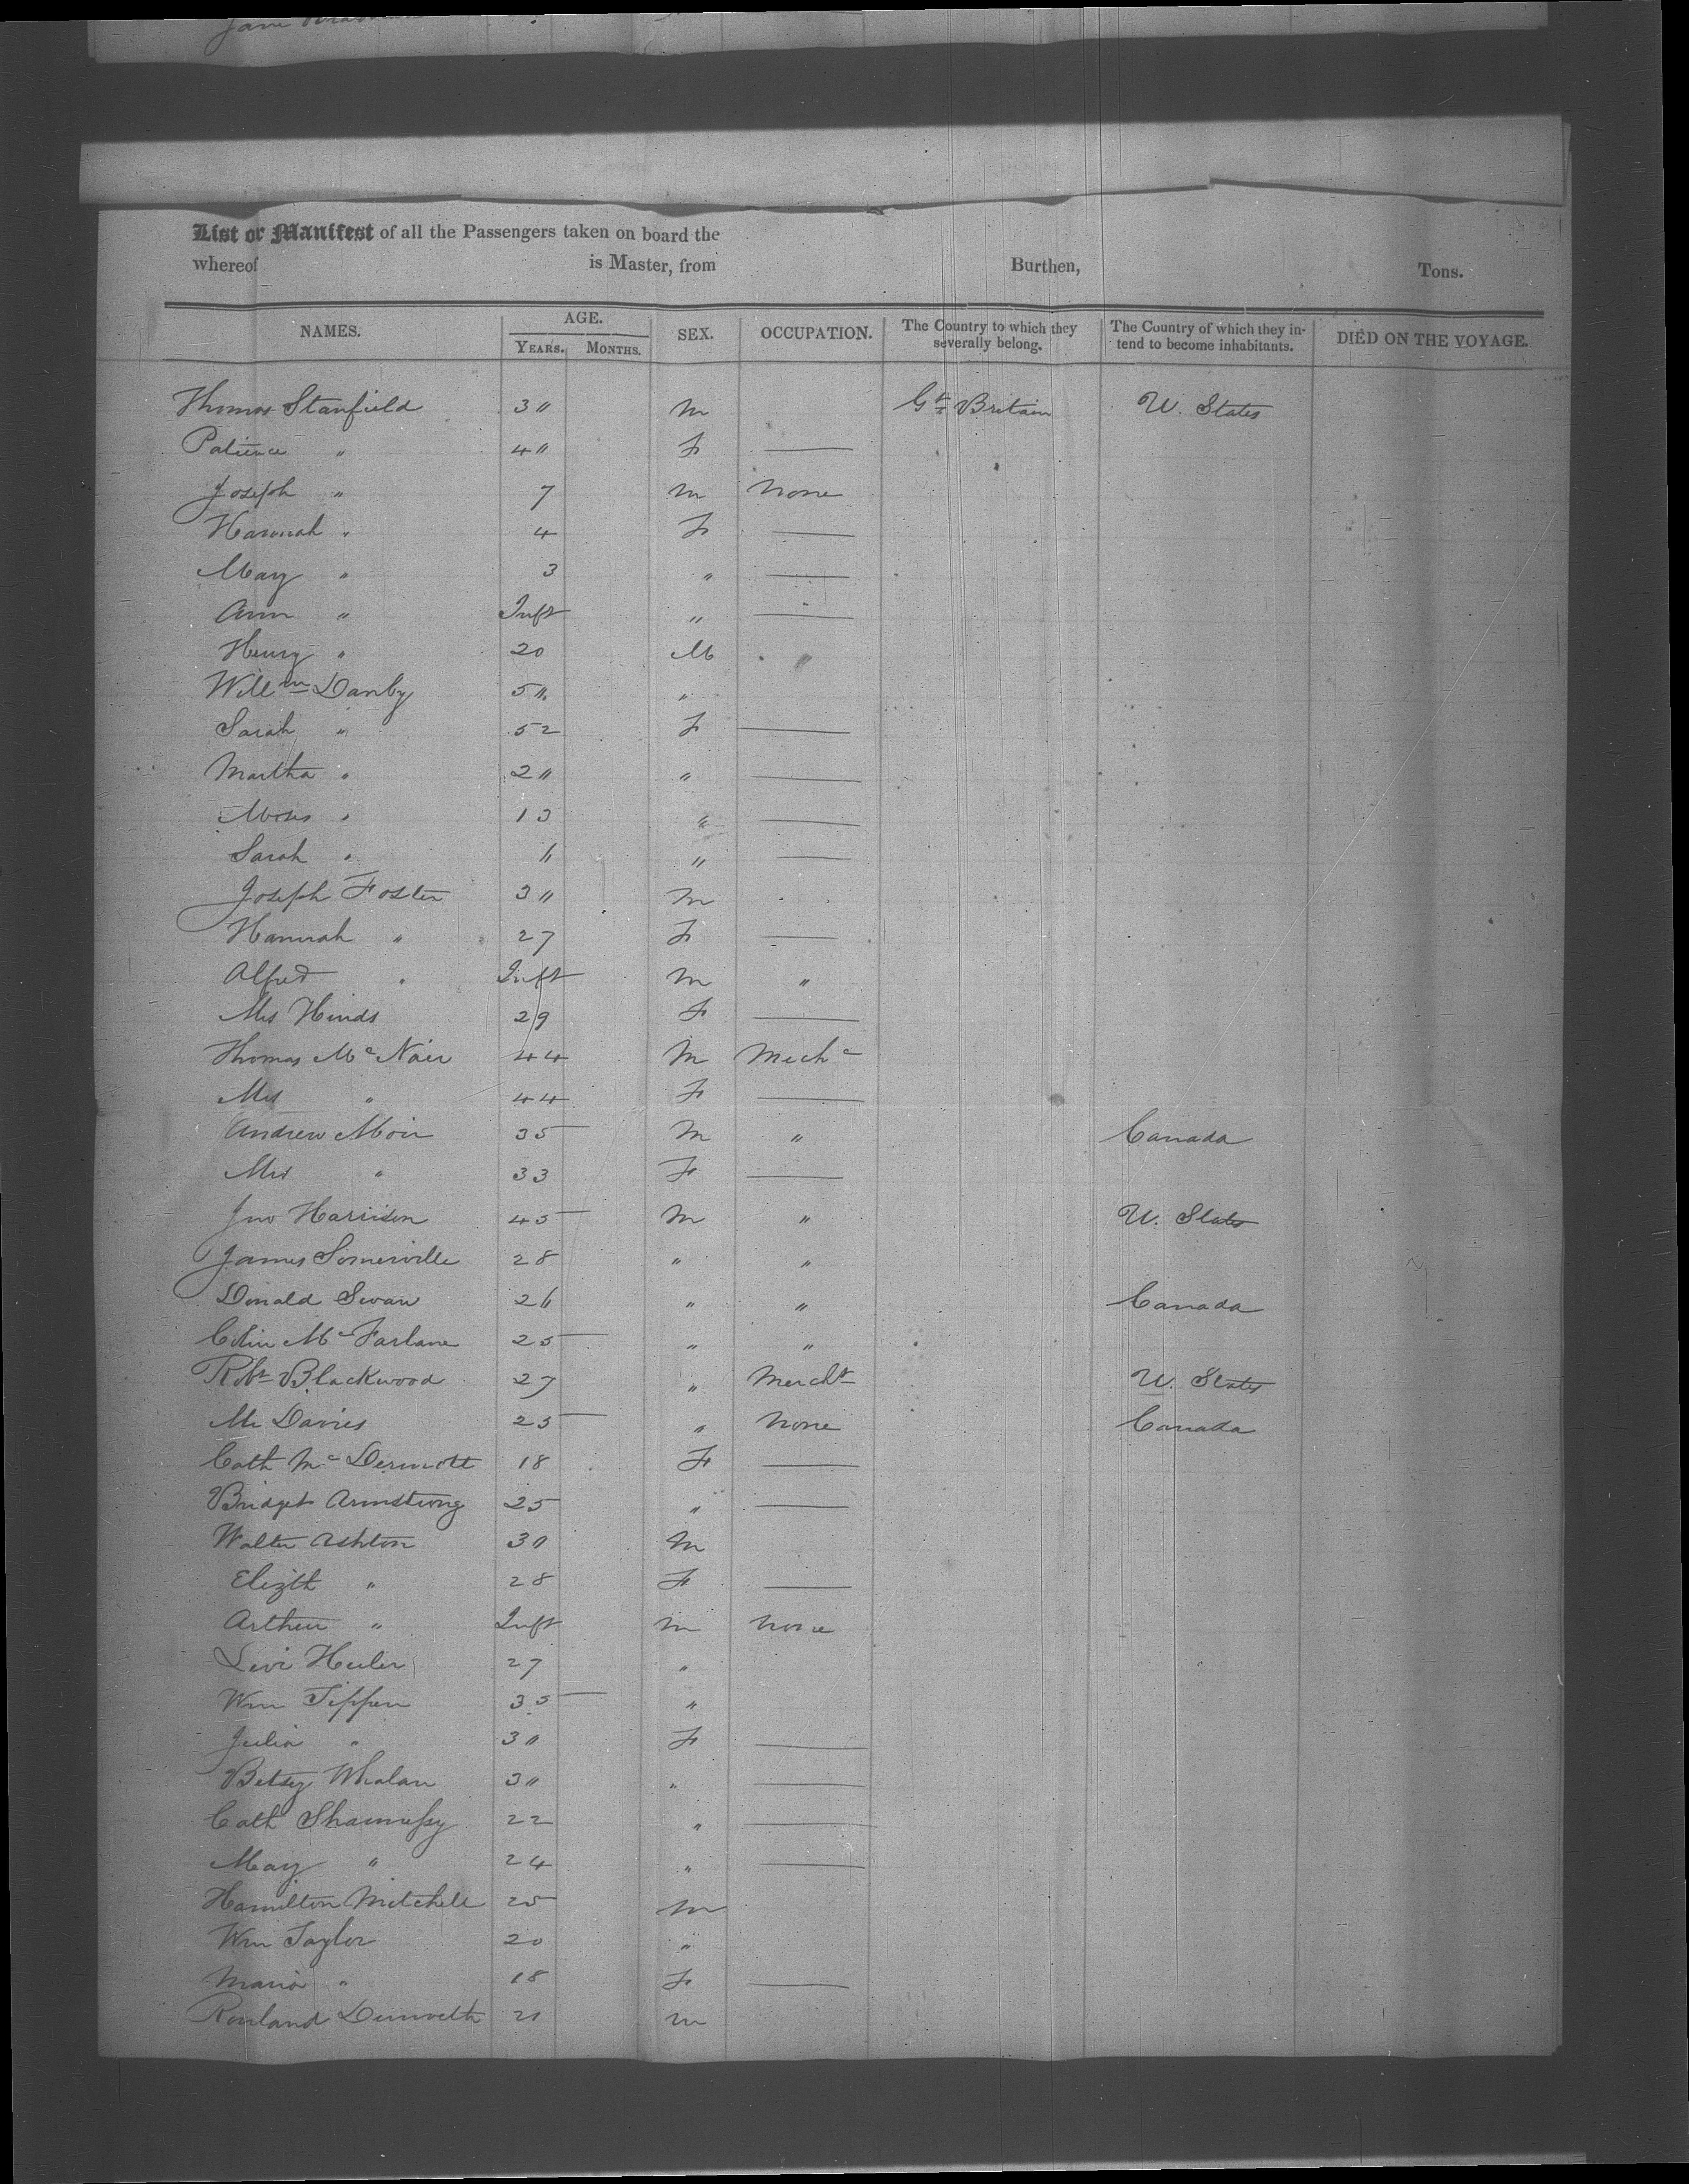 Jane
List or Manifest of all the Passengers taken on board the
whereof is Master, from Burthen, Tons.
NAMES. AGE. YEARS. MONTHS. SEX. OCCUPATION. The Country to which they severally belong. The Country of which they intend to become inhabitants. DIED ON THE VOYAGE.
Thomas Stanfield 3" M Gt Britain U. States
Patience " 4" F —
Joseph " 7 M None
Hannah " 4 F —
Mary " 3 " —
Ann " Inft " —
Henry " 20 M "
Willm Danby 5" "
Sarah " 52 F —
Martha " 2" " —
Moses " 13 " —
Sarah " 11 " —
Joseph Foster 3" M
Hannah " 27 F —
Alfred " Inft M "
Mrs Hinds 29 F —
Thomas McNair 44 M Mechc
Mrs " 44 F —
Andrew Moir 35 M " Canada
Mrs " 33 F —
Jno Harrison 45 M " U. States
James Somerville 28 " "
Donald Swan 26 " " Canada
Colin McFarlane 25 " "
Robt Blackwood 27 " Mercht U. States
Mr Davies 25 " None Canada
Cath McDermott 18 F —
Bridget Armstrong 25 " —
Walter Ashton 30 M
Elizth " 28 F —
Arthur " Inft M None
Levi 27 "
Wm Tippen 35 "
Julia " 3" F —
Betsy Whalan 3" " —
Cath Shaunessy 22 " —
Mary " 24 " —
Hamilton Mitchell 25 M
Wm Taylor 20 "
Maria " 18 F —
Rowland 21 M